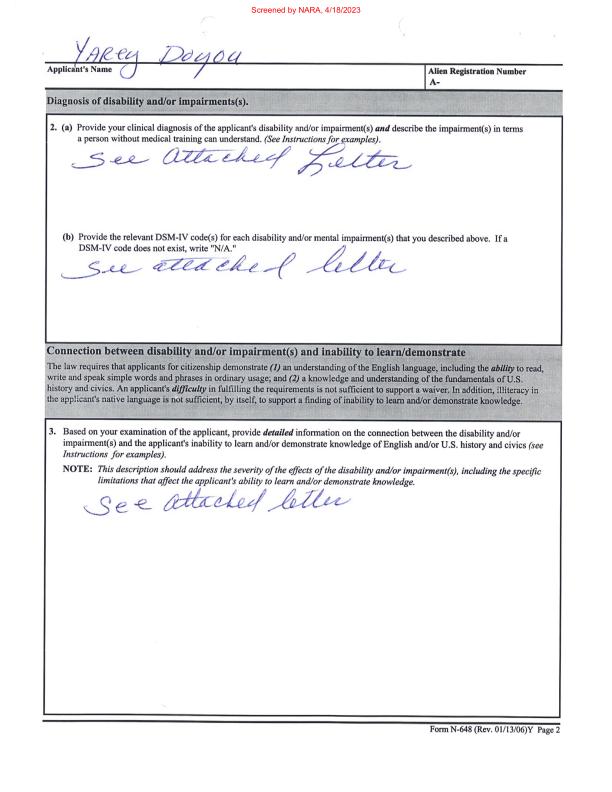 Screened by NARA, 4/18/2023
Yarey Doyou
Applicant's Name
Alien Registration Number
A-
Diagnosis of disability and/or impairments(s).
2. (a) Provide your clinical diagnosis of the applicant's disability and/or impairment(s) and describe the impairment(s) in terms
a person without medical training can understand. (See Instructions for examples).
See Attached Letter
(b) Provide the relevant DSM-IV code(s) for each disability and/or mental impairment(s) that you described above. If a
DSM-IV code does not exist, write "N/A."
See attached letter
Connection between disability and/or impairment(s) and inability to learn/demonstrate
The law requires that applicants for citizenship demonstrate (1) an understanding of the English language, including the ability to read,
write and speak simple words and phrases in ordinary usage; and (2) a knowledge and understanding of the fundamentals of U.S.
history and civics. An applicant's difficulty in fulfilling the requirements is not sufficient to support a waiver. In addition, illiteracy in
the applicant's native language is not sufficient, by itself, to support a finding of inability to learn and/or demonstrate knowledge.
3. Based on your examination of the applicant, provide detailed information on the connection between the disability and/or
impairment(s) and the applicant's inability to learn and/or demonstrate knowledge of English and/or U.S. history and civics (see
Instructions for examples).
NOTE: This description should address the severity of the effects of the disability and/or impairment(s), including the specific
limitations that affect the applicant's ability to learn and/or demonstrate knowledge.
See attached letter
Form N-648 (Rev. 01/13/06)Y Page 2